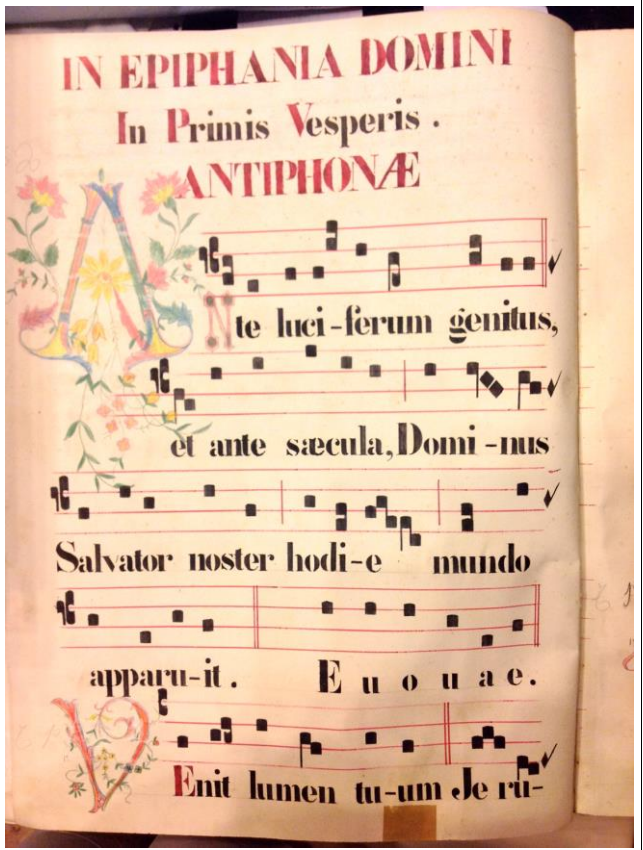 IN EPIPHANIA DOMINI
In Primis Vesperis.
ANTIPHONÆ
ANte luci-ferum genitus,
et ante sæcula, Domi-nus
Salvator noster hodi-e mundo
apparu-it. E u o u a e.
VEnit lumen tu-um Je rú-